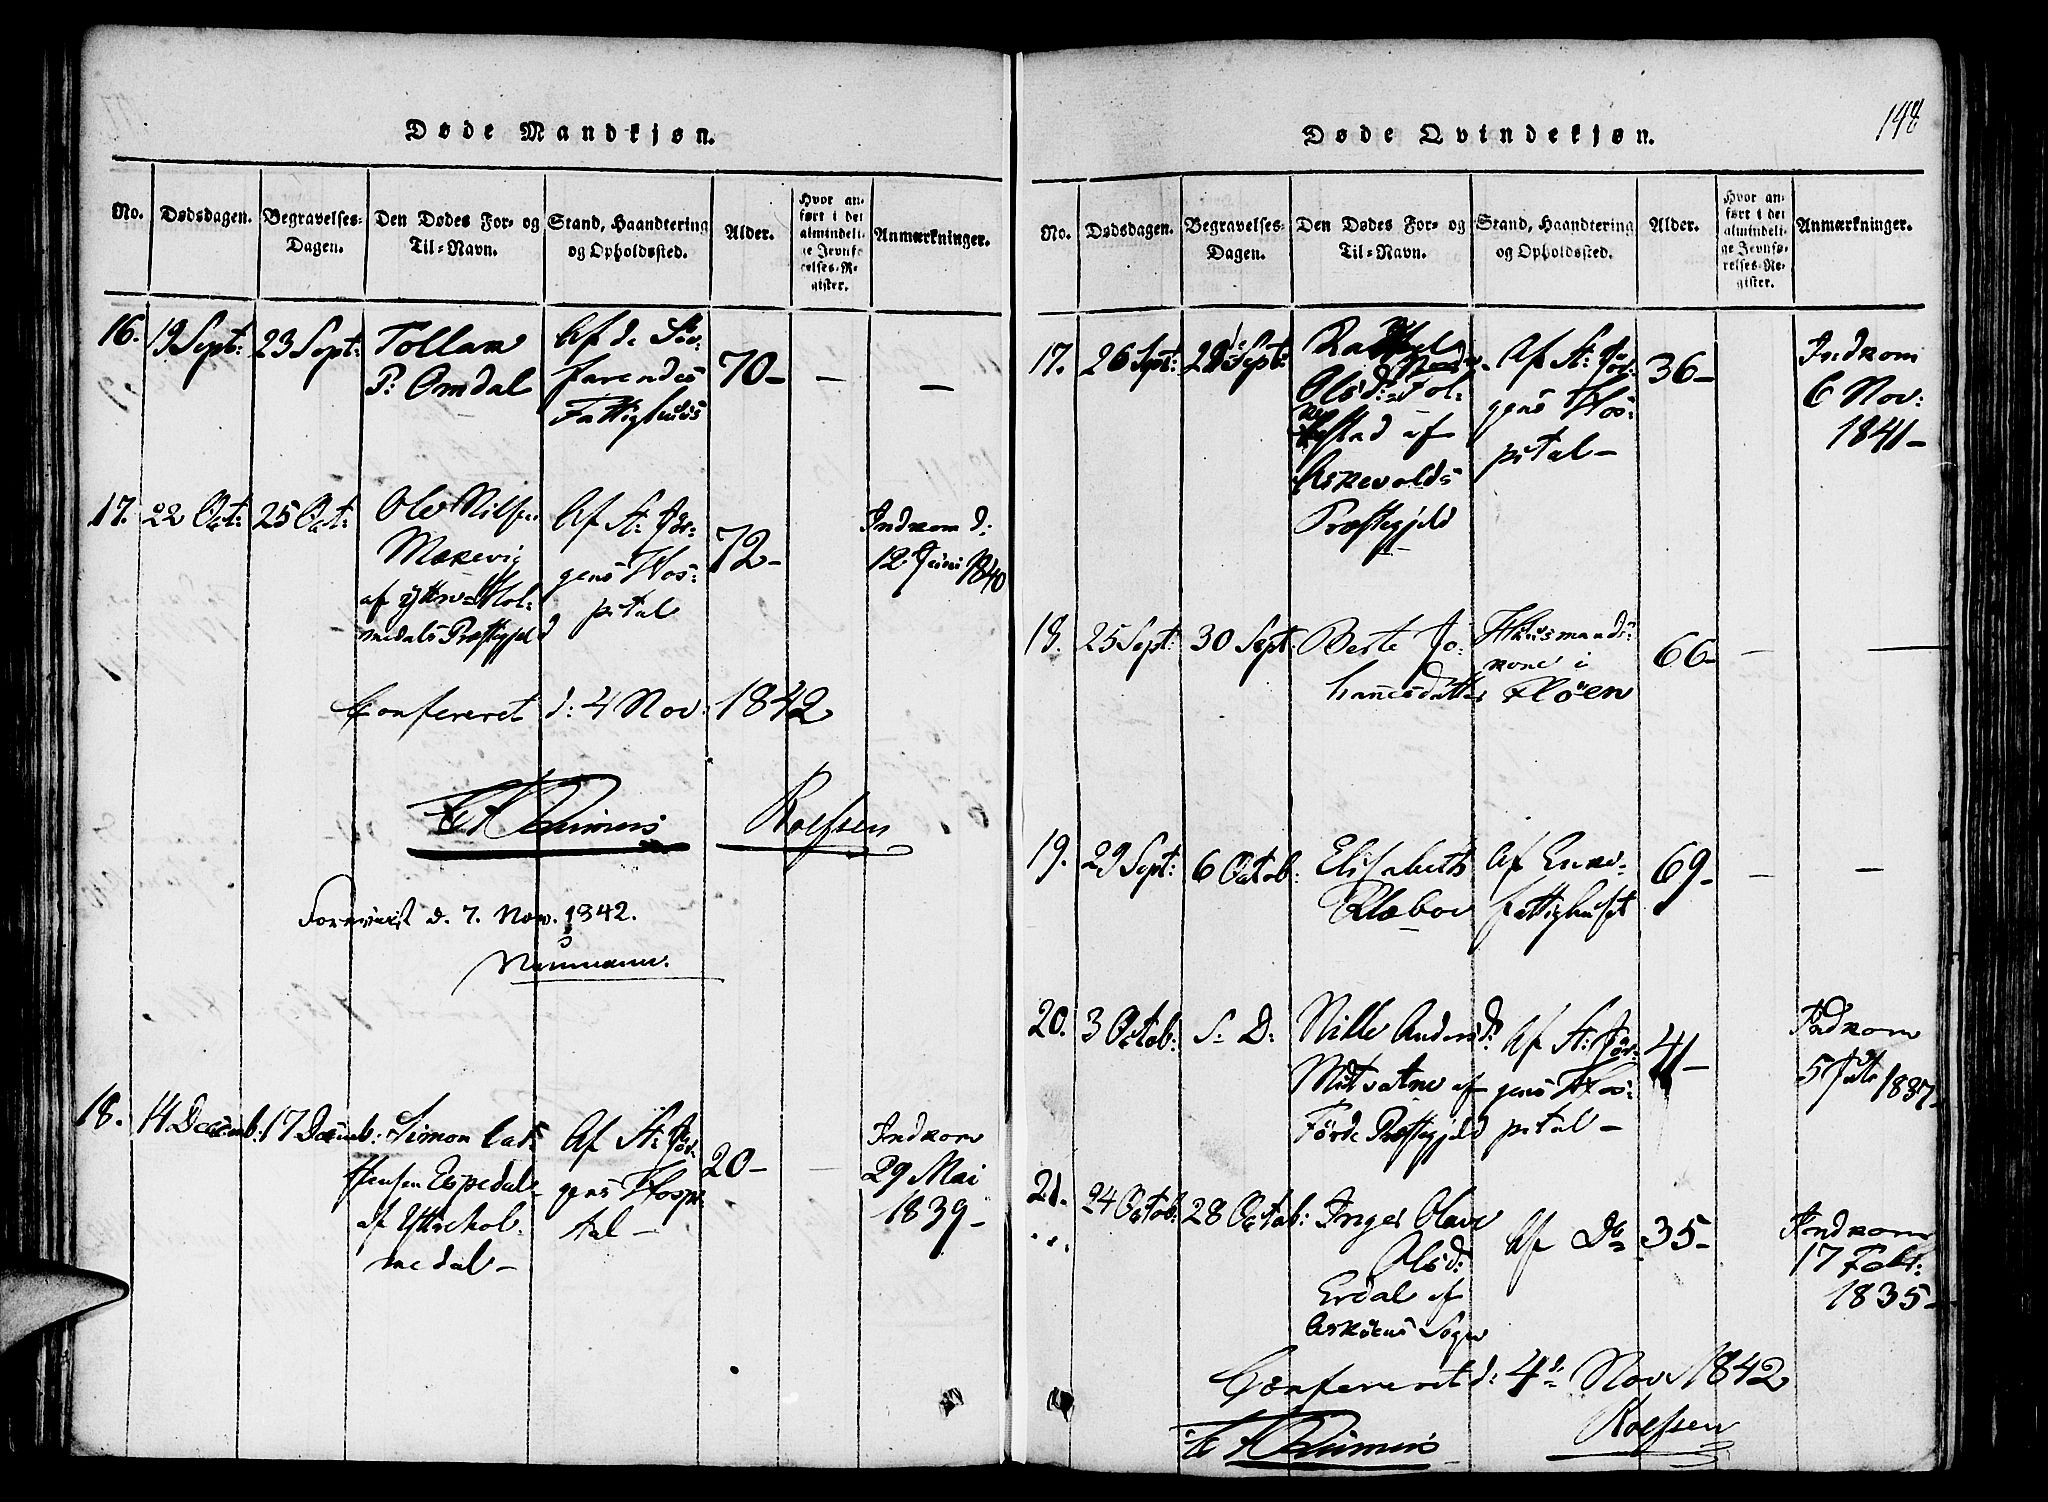 148
Døde Mandkjøn.
No.
Dødsdagen.
Begravelses-
Dagen.
Den Dødes For- og
Til-Navn.
Stand, Haandtering
og Opholdssted.
Alder.
Hvor an-
ført i det
almindeli-
ge Jevnfø-
relses-Re-
gister.
Anmærkninger.
16.
19 Sept:
23 Sept:
Tollam
P: Omdal
Af de Sø-
farendes
Fattighuus
70-
-
-
17.
22 Oct:
25 Oct:
Ole Nilsen
Mærevig
af Yttre Hol-
medals Præstegjeld
Af St: Jør-
gens Hos-
pital
72-
Indkom d:
12 Juni 1840
Confereret d: 4 Nov: 1842
Rolfsen
Foreviist d. 7. Nov. 1842.
Neumann.
18.
14 Decemb:
17 Decemb:
Simon
Espedal
af Yttrehol-
medal-
Af St: Jør-
gens Hospi-
tal-
20-
-
Indkom
29 Mai
1839-
Døde Qvindekjøn.
No.
Dødsdagen.
Begravelses-
Dagen.
Den Dødes For- og
Til-Navn.
Stand, Haandtering
og Opholdssted.
Alder.
Hvor an-
ført i det
almindeli-
ge Jevnfø-
relses-Re-
gister.
Anmærkninger.
17.
26 Sept:
Olsd: Fol-
kestad af
Askevolds
Præstegjeld
Af St: Jør-
gens Hos-
pital-
36-
Indkom
6 Nov:
1841-
18.
25 Sept:
30 Sept:
Berte Jo-
hannesdatter
Huusmands-
kone i
Fløen
66-
-
-
19.
29 Sept:
6 Octob:
Elisabeth
Klæboe
Af Enke-
fattighuset
69-
-
-
20.
3 Octob:
S: D:
Nille Andersd:
af
Førde Præstegjeld
Af St: Jør-
gens Hos-
pital-
41-
Indkom
5 1837-
21.
24 Octob:
28 Octob:
Inger Olave
Olsd:
Erdal af
Askøens Sogn
Af Do
35-
Indkom
17 Febr:
1835-
Confereret d: 4d: Nov 1842
Rolfsen